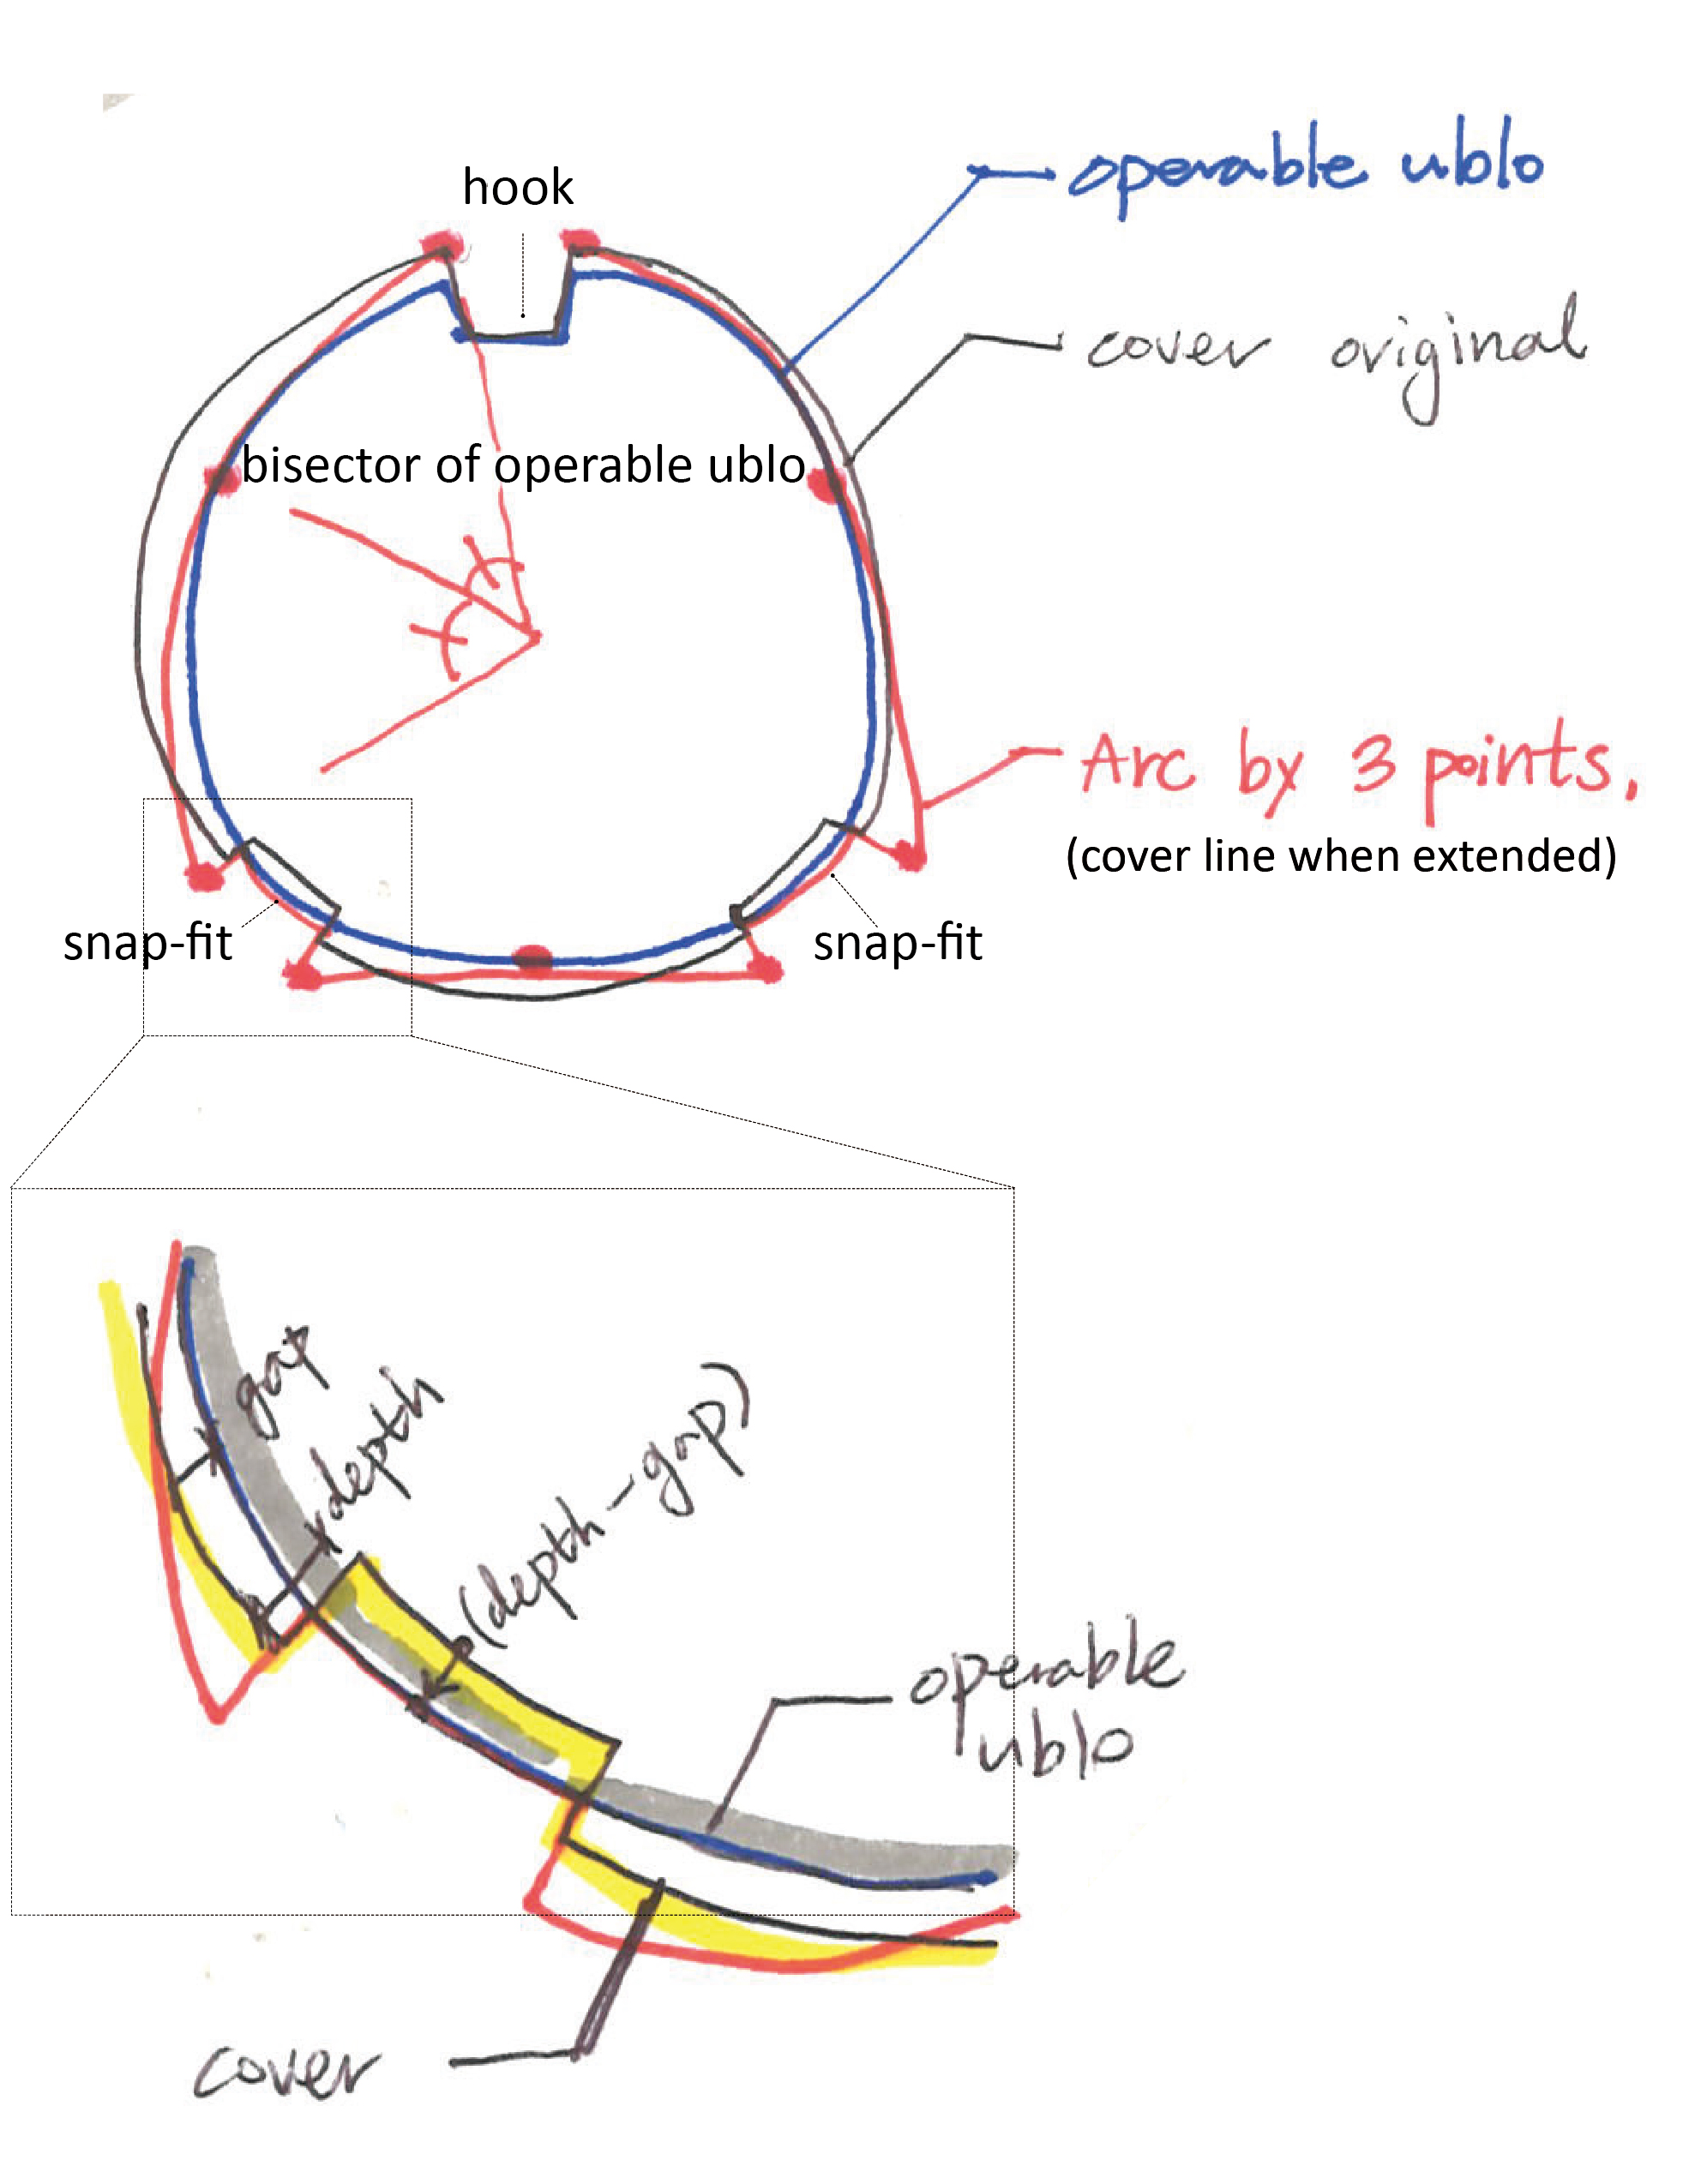 hook
operable ublo
cover original
bisector of operable ublo
Arc by 3 points.
(cover line when extended)
snap-fit
snap-fit
gap
depth
(depth-gap)
operable
ublo
cover